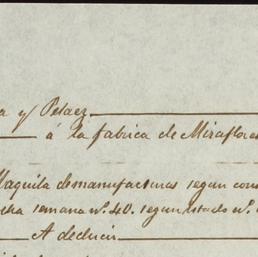 a y Pelaez
á la fabrica de Miraflores
Maquila de manufacturas segun con
cha semana nº 40. segun estado nº
A deducir